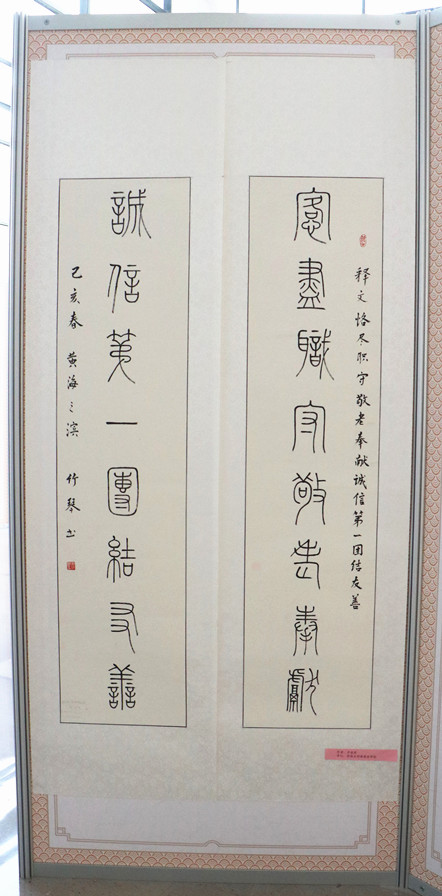 愙盡職守敬老奉獻
释文恪尽职守敬老奉献诚信第一团结友善
誠信苐一團結友善
乙亥春 黄海之滨 竹琴书